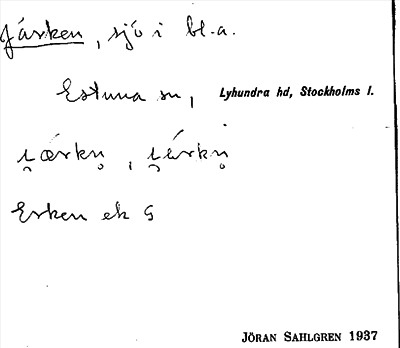 Járken, sjö i bl.a.
Estuna sn, Lyhundra hd, Stockholms l.
Erken ek S
JÖRAN SAHLGREN 1937